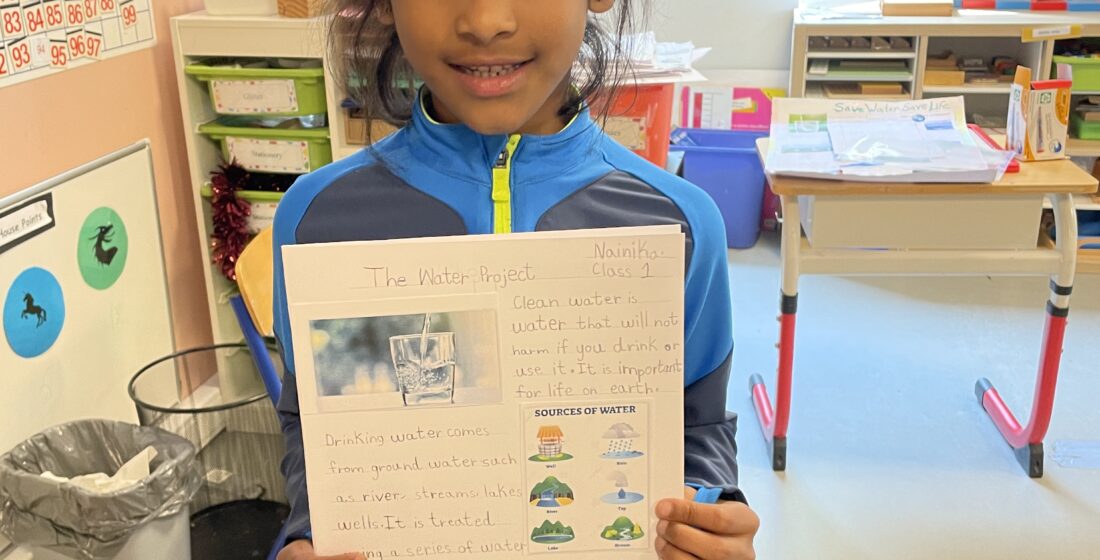 83 84 85 86 87 88
99
93 94 95 96 97
House Points
Glue
Stationery
Save Water Save Life
Nainika.
Class 1
The Water Project
Clean water is
water that will not
harm if you drink or
use it. It is important
for life on earth.
SOURCES OF WATER
Well
Rain
River
Tap
Lake
Stream
Drinking water comes
from ground water such
as river, streams, lakes
wells. It is treated
a series of water